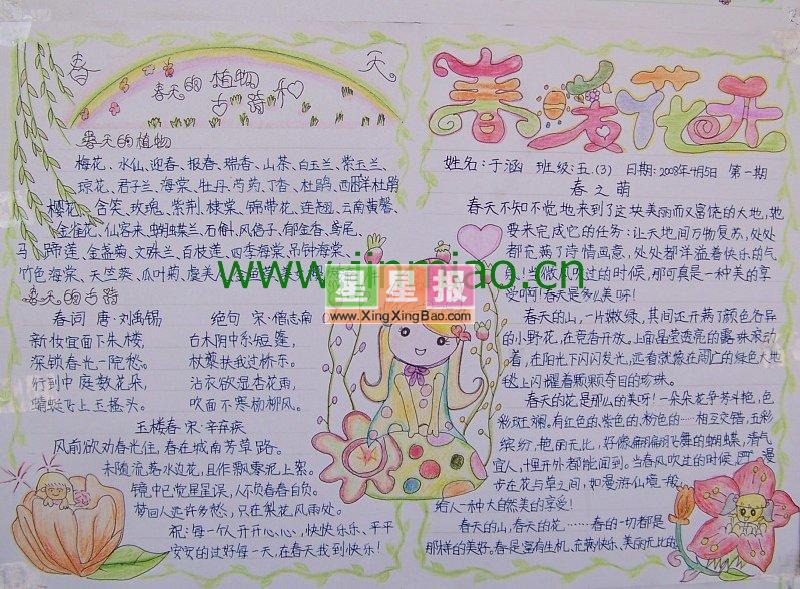 春天
春天的植物和
古诗
春天的植物
梅花、水仙、迎春、报春、瑞香、山茶、白玉兰、紫玉兰、
琼花、君子兰、海棠、牡丹、芍药、丁香、杜鹃、西洋杜鹃
樱花、含笑、玫瑰、紫荆、棣棠、锦带花、连翘、云南黄馨、
金雀花、仙客来、蝴蝶兰、石斛、风信子、郁金香、鸢尾、
马蹄莲、金盏菊、文殊兰、百枝莲、四季海棠、吊钟海棠、
竹色海棠、天竺葵、瓜叶菊、虞美人
春天的古诗
春词 唐·刘禹锡
新妆宜面下朱楼,
深锁春光一院愁。
行到中庭数花朵,
蜻蜓飞上玉搔头。
绝句 宋·僧志南
古木阴中系短篷,
杖藜扶我过桥东。
沾衣欲湿杏花雨,
吹面不寒杨柳风。
玉楼春 宋·辛弃疾
风前欲劝春光住,春在城南芳草路。
未随流落水边花,且作飘零泥上絮。
镜中已觉星星误,人不负春春自负。
梦回人远许多愁,只在梨花风雨处。
祝:每一个人开开心心,快快乐乐、平平
安安的过好每一天,在春天找到快乐!
春暖花开
姓名:于涵 班级:五.(3) 日期:2008年4月5日 第一期
春之萌
春天不知不觉地来到了这块美丽而又富饶的大地,她
要来完成它的任务:让天地间万物复苏,处处
都充满了诗情画意,处处都洋溢着快乐的气
当微风 过的时候,那可真是一种美的享
受啊!春天是多么美呀!
春天的山,一片嫩绿,其间还开满了颜色各异
的小野花,在竞香开放,上面晶莹透亮的露珠滚动
着,在阳光下闪闪发光,远看就像在阔广的绿色大地
毯上闪耀着颗颗夺目的珍珠。
春天的花是那么的美呀!一朵朵花争芳斗艳,色
彩斑斓,有红色的、紫色的、粉色的……相互交错,五彩
缤纷,艳丽无比,好像翩翩飞舞的蝴蝶,清气
宜人,十里开外都能闻到。当春风吹过的时候, 漫
步在花与草之间,如漫游仙境一般,
给人一种大自然美的享受!
春天的山,春天的花……春的一切都是
那样的美好。春是富有生机、充满快乐、美丽无比的
www.jinniao.cn
星星报
www.XingXingBao.com